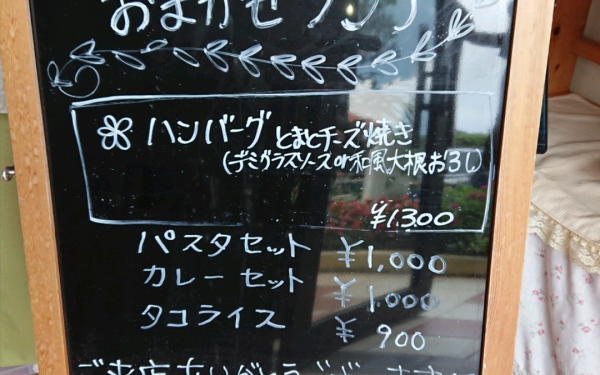 おまかせランチ
ハンバーグ とまとチーズ焼き
(デミグラスソース or 和風大根おろし)
¥1300
パスタセット ¥1,000
カレーセット ¥1,000
タコライス ¥900
ご来店ありがとうございます